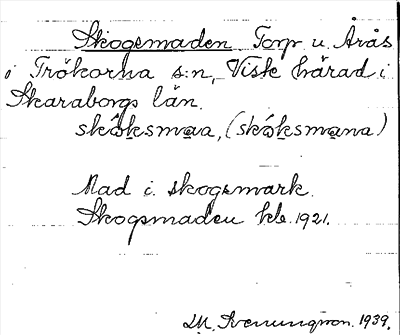 Skogsmaden Torp u. Årås
i Trökörna s:n, Viste härad i
Skaraborgs län.
skɷ́ksmaa, (skɷ́ksmana)
Mad i skogsmark.
Skogsmaden kb. 1921.
D.M. Svenungsson. 1939.